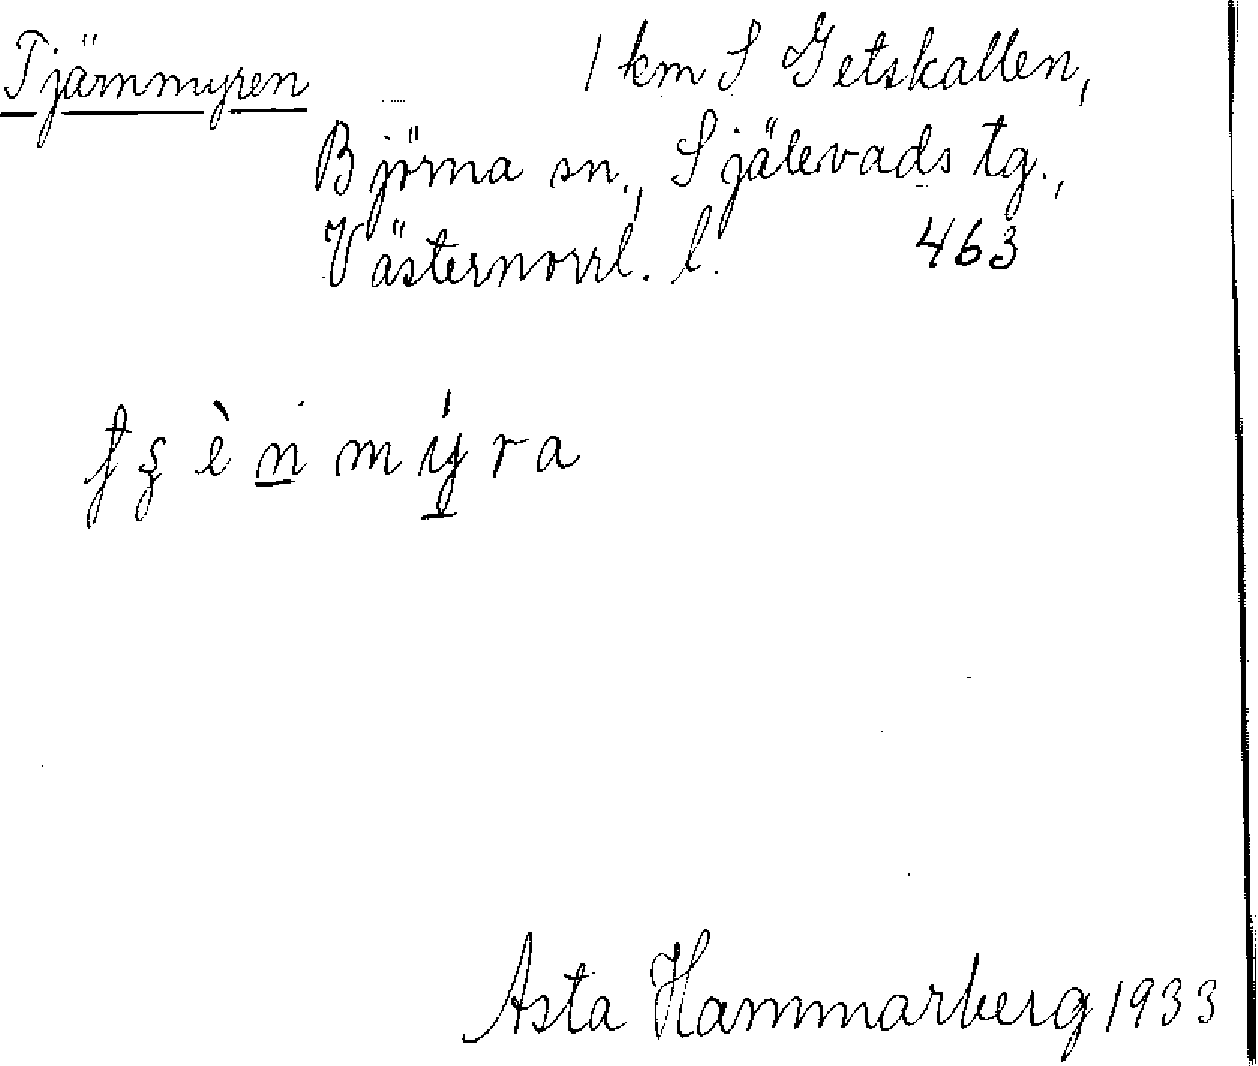 Tjärnmyren 1 km S Getskallen,
Björna sn., Själevads tg.,
Västernorrl. l. 463
mýra
Asta Hammarberg 1933